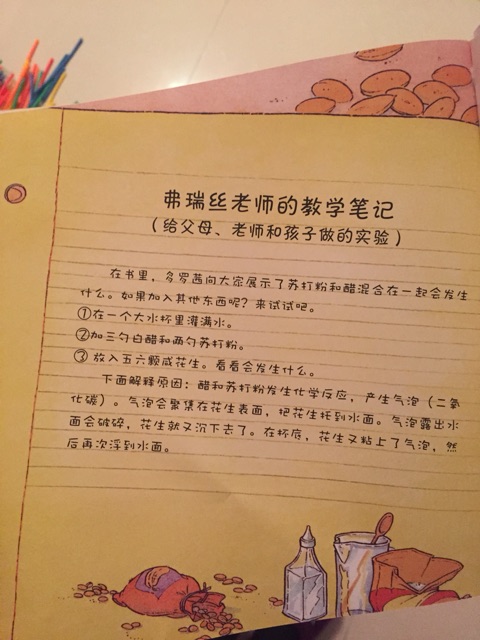 弗瑞丝老师的教学笔记
（给父母、老师和孩子做的实验）
在书里，多罗茜向大家展示了苏打粉和醋混合在一起会发生
什么。如果加入其他东西呢？来试试吧。
①在一个大水杯里灌满水。
②加三勺白醋和两勺苏打粉。
③放入五六颗咸花生。看看会发生什么。
下面解释原因：醋和苏打粉发生化学反应，产生气泡（二氧
化碳）。气泡会聚集在花生表面，把花生托到水面。气泡露出水
面会破碎，花生就又沉下去了。在杯底，花生又粘上了气泡，然
后再次浮到水面。